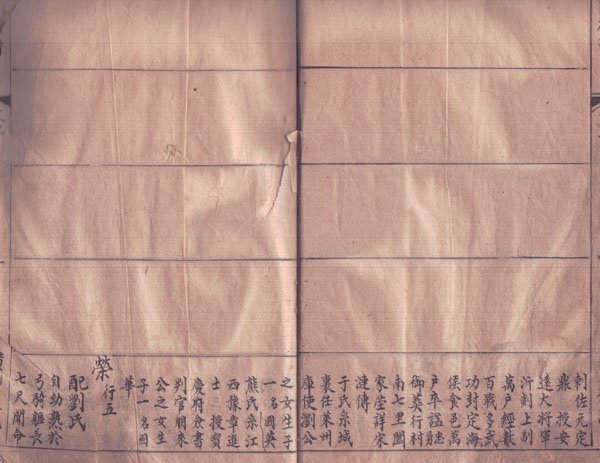 刺佐元定
鼎 投安
遠大將軍
沂剡上剖
萬戶經數
百戰多武
功封定海
侯食邑萬
戶卒諡忠
御英行村
南七里園
家塋詳宋
漣傳
于氏系城
襄任萊州
庫使劉公
之女生子
一名國英
熊氏系江
西豫章進
士 投資
慶府僉書
判官朋來
公之女生
子一名國
華
榮行五
配劉氏
自幼熟於
弓騎軀長
七尺聞命